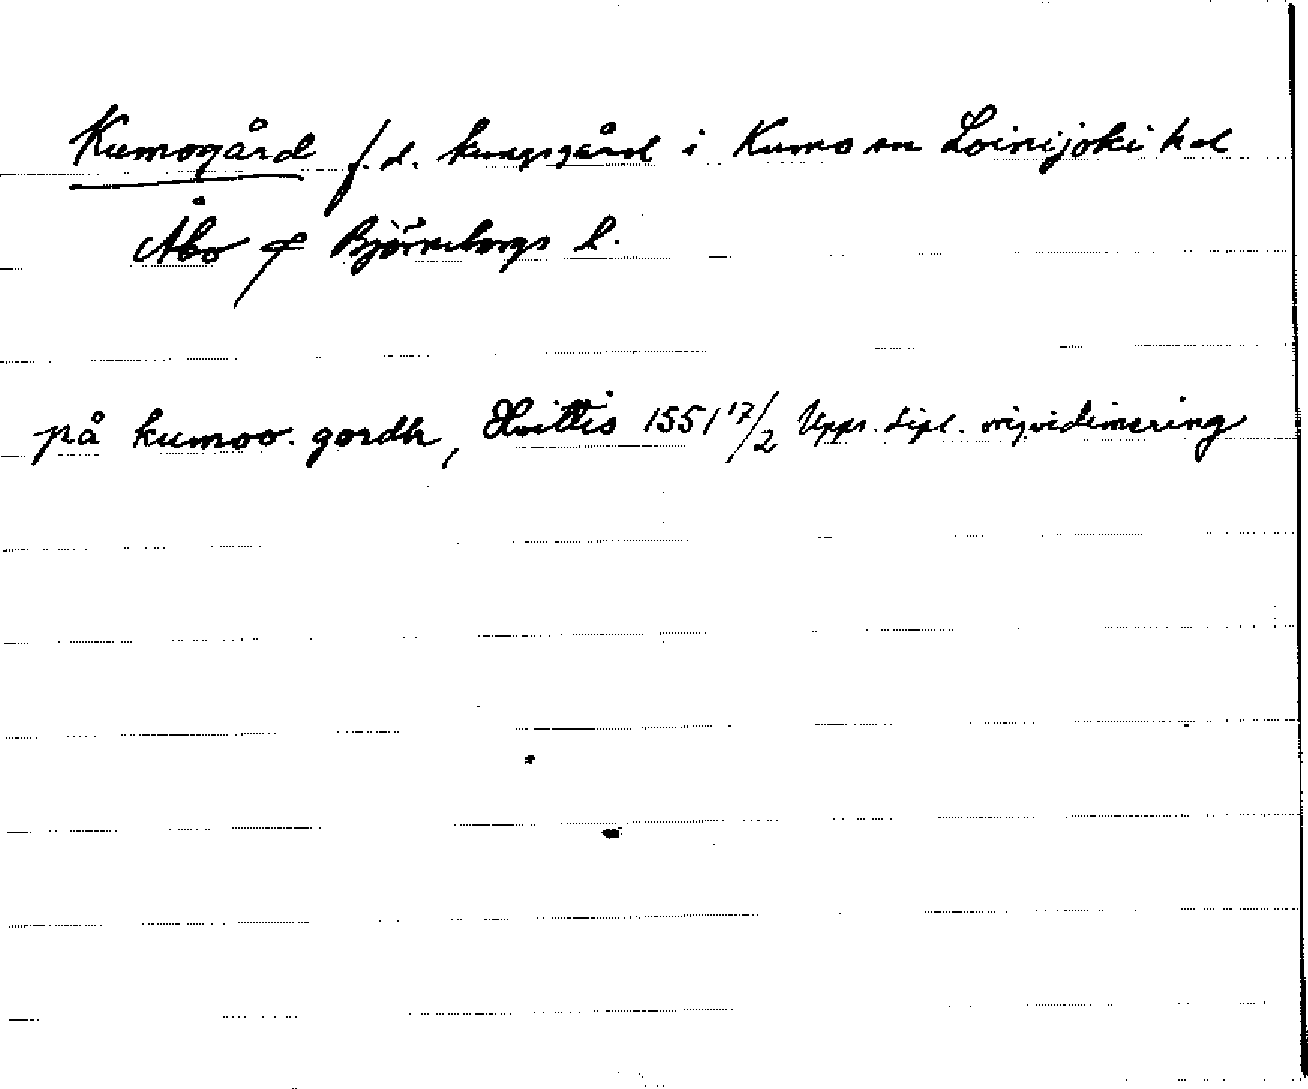 Kumogård f.d. kungsgård i Kumo sn Loinijoki hd
Åbo o Björneborgs l.
på kumoo. gordh, Hvittis 1551 17/2 Upps. dipl. vidimering